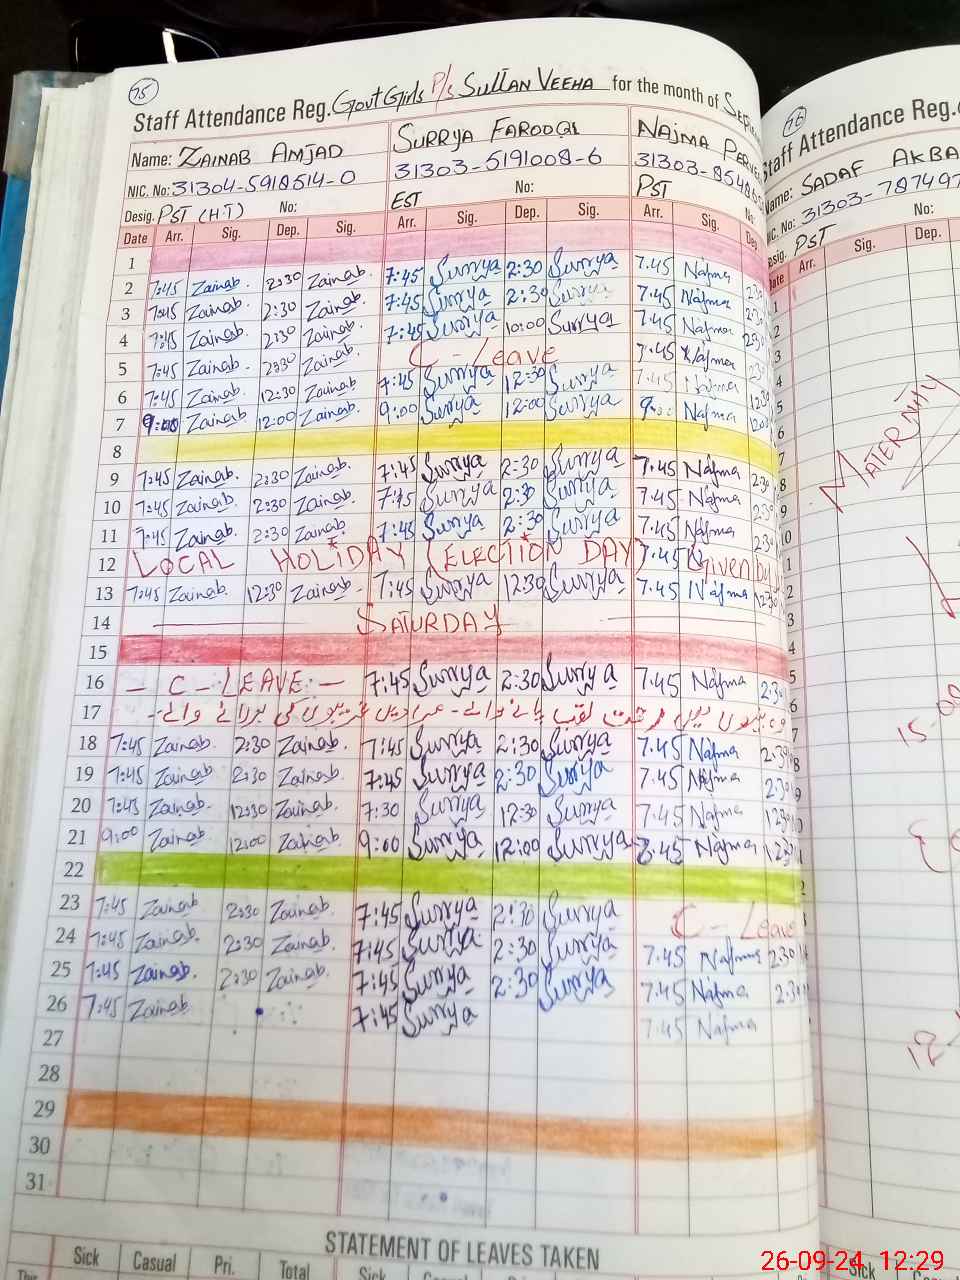 75
Staff Attendance Reg. Govt Girls P/s Sultan Veeha for the month of
Name: Zainab Amjad Surrya Farooqi Najma
NIC. No: 31304-5918514-0 31303-5191008-6 31303-8548
Desig. PST (H.T) No: EST No: PST No:
Date Arr. Sig. Dep. Sig. Arr. Sig. Dep. Sig. Arr. Sig. Dep
1
2 7:45 Zainab. 2:30 Zainab. 7:45 Surrya 2:30 Surrya 7.45 Najma 2:30
3 7:45 Zainab. 2:30 Zainab. 7:45 Surrya 2:30 Surrya 7.45 Najma 2:30
4 7:45 Zainab. 2:30 Zainab. 7:45 Surrya 10:00 Surrya 7.45 Najma 2:30
5 7:45 Zainab. 2:30 Zainab. C - Leave 7.45 Najma 2:30
6 7:45 Zainab. 12:30 Zainab. 7:45 Surrya 12:30 Surrya 7.45 Najma 12:30
7 9:00 Zainab. 12:00 Zainab. 9:00 Surrya 12:00 Surrya 9:00 Najma 12:00
8
9 7:45 Zainab. 2:30 Zainab. 7:45 Surrya 2:30 Surrya 7.45 Najma 2:30
10 7:45 Zainab. 2:30 Zainab. 7:45 Surrya 2:30 Surrya 7.45 Najma 2:30
11 7:45 Zainab. 2:30 Zainab. 7:45 Surrya 2:30 Surrya 7.45 Najma 2:30
12 Local Holiday (Election Day) 7.45 Given by
13 7:45 Zainab. 12:30 Zainab. 7:45 Surrya 12:30 Surrya 7.45 Najma 12:30
14 Saturday
15
16 - C - Leave - 7:45 Surrya 2:30 Surrya 7.45 Najma 2:30
17 وہ نبیوں میں رحمت لقب پانے والے - مرادیں غریبوں کی بر لانے والے
18 7:45 Zainab. 2:30 Zainab. 7:45 Surrya 2:30 Surrya 7.45 Najma 2:30
19 7:45 Zainab. 2:30 Zainab. 7:45 Surrya 2:30 Surrya 7.45 Najma 2:30
20 7:45 Zainab. 12:30 Zainab. 7:30 Surrya 12:30 Surrya 7.45 Najma 12:30
21 9:00 Zainab. 12:00 Zainab. 9:00 Surrya 12:00 Surrya 8.45 Najma
22
23 7:45 Zainab. 2:30 Zainab. 7:45 Surrya 2:30 Surrya C - Leave
24 7:45 Zainab. 2:30 Zainab. 7:45 Surrya 2:30 Surrya 7.45 Najma 2:30
25 7:45 Zainab. 2:30 Zainab. 7:45 Surrya 2:30 Surrya 7.45 Najma 2:30
26 7:45 Zainab 7:45 Surrya 7.45 Najma
27
28
29
30
31
STATEMENT OF LEAVES TAKEN
Sick Casual Pri. Total Sick Casual
76
Staff Attendance Reg.
Name: Sadaf
NIC. No: 31303-78749
Desig. PST No:
Date Arr. Sig. Dep.
Maternity
Sick
26-09-24 12:29